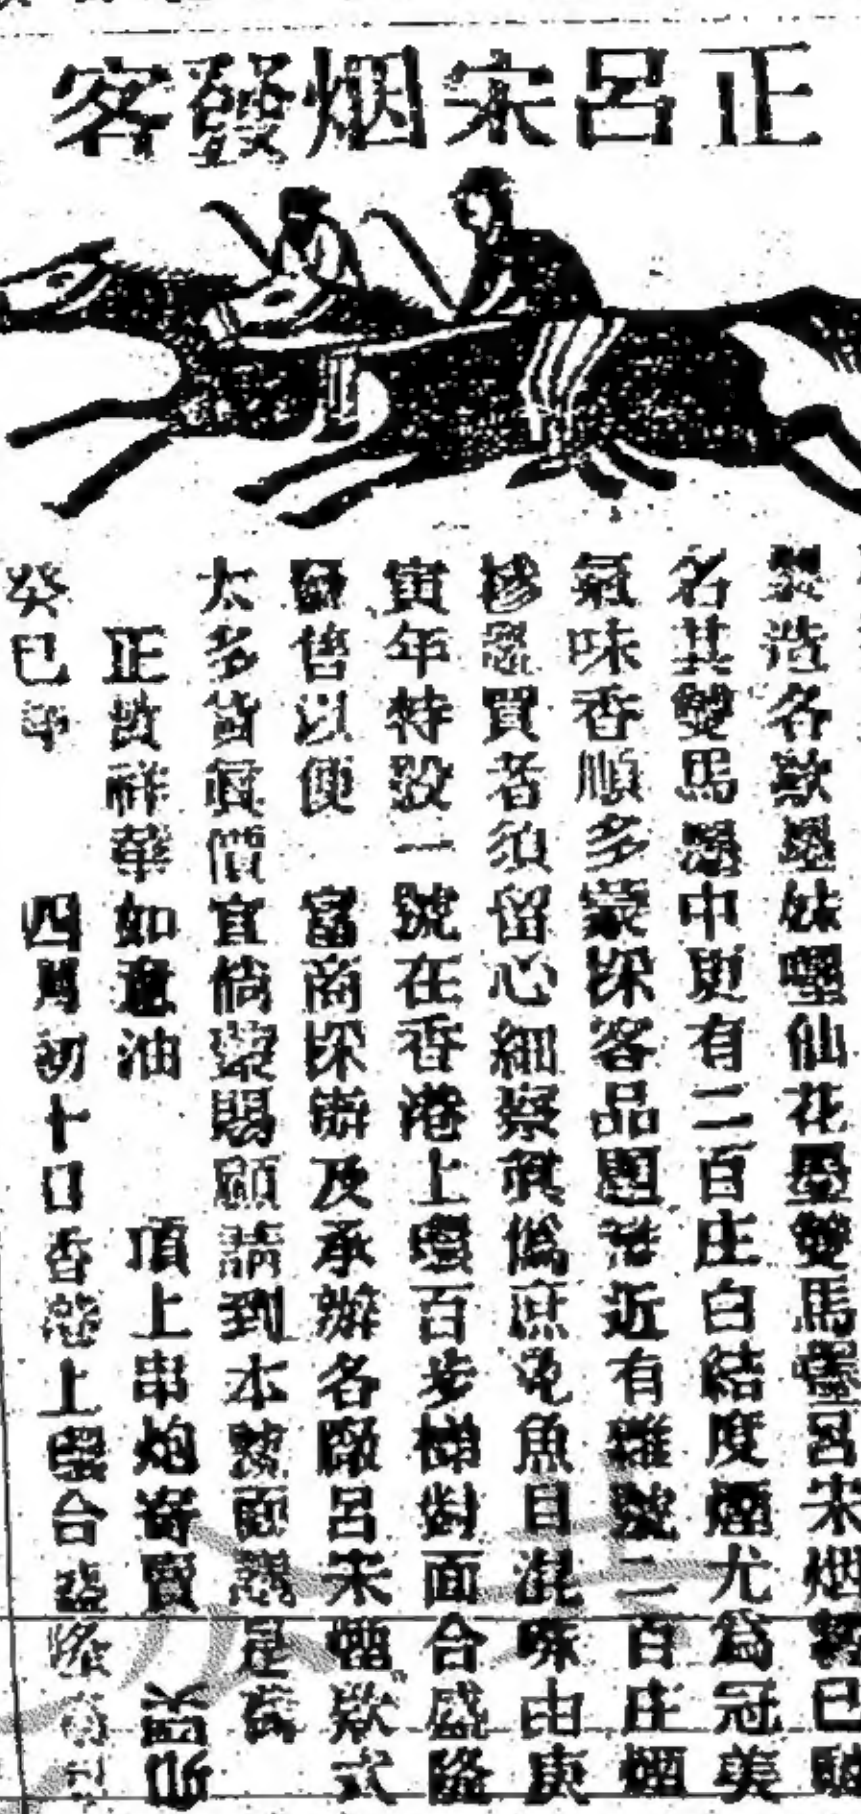 正呂宋烟發客
製造名欵墨妹嚜仙花墨雙馬嚜呂宋烟久已馳
名其雙馬墨中更有二百庄白結度煙尤為冠美
氣味香順多蒙採客品題近有雜號二百庄煙
摻混買者須留心細察真偽庶免魚目混珠由庚
寅年特設一號在香港上環百步梯對面合盛隆
發售以便 富商採辦及承辦各廠呂宋煙欵式
太多貨真價宜倘蒙賜顧請到本號面議是荷
正散祥華如意油 頂上串炮寄賣
癸巳年 四月初十日香港上環合盛隆